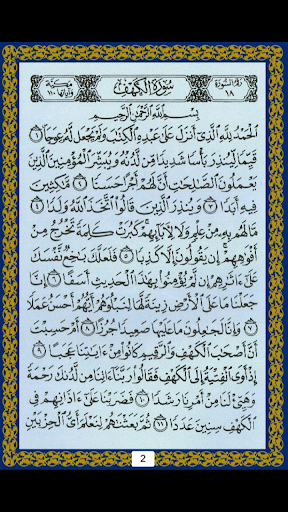 رقم السورة ١٨ سورة الكهف مكية وآياتها ١١٠
بِسْمِ ٱللَّهِ ٱلرَّحْمَٰنِ ٱلرَّحِيمِ
ٱلْحَمْدُ لِلَّهِ ٱلَّذِىٓ أَنزَلَ عَلَىٰ عَبْدِهِ ٱلْكِتَٰبَ وَلَمْ يَجْعَل لَّهُۥ عِوَجَا ١
قَيِّمًا لِّيُنذِرَ بَأْسًا شَدِيدًا مِّن لَّدُنْهُ وَيُبَشِّرَ ٱلْمُؤْمِنِينَ ٱلَّذِينَ
يَعْمَلُونَ ٱلصَّٰلِحَٰتِ أَنَّ لَهُمْ أَجْرًا حَسَنًا ٢ مَّٰكِثِينَ
فِيهِ أَبَدًا ٣ وَيُنذِرَ ٱلَّذِينَ قَالُوا۟ ٱتَّخَذَ ٱللَّهُ وَلَدًا ٤
مَّا لَهُم بِهِۦ مِنْ عِلْمٍ وَلَا لِءَابَآئِهِمْ كَبُرَتْ كَلِمَةً تَخْرُجُ مِنْ
أَفْوَٰهِهِمْ إِن يَقُولُونَ إِلَّا كَذِبًا ٥ فَلَعَلَّكَ بَٰخِعٌ نَّفْسَكَ
عَلَىٰٓ ءَاثَٰرِهِمْ إِن لَّمْ يُؤْمِنُوا۟ بِهَٰذَا ٱلْحَدِيثِ أَسَفًا ٦ إِنَّا
جَعَلْنَا مَا عَلَى ٱلْأَرْضِ زِينَةً لَّهَا لِنَبْلُوَهُمْ أَيُّهُمْ أَحْسَنُ عَمَلًا
٧ وَإِنَّا لَجَٰعِلُونَ مَا عَلَيْهَا صَعِيدًا جُرُزًا ٨ أَمْ حَسِبْتَ
أَنَّ أَصْحَٰبَ ٱلْكَهْفِ وَٱلرَّقِيمِ كَانُوا۟ مِنْ ءَايَٰتِنَا عَجَبًا ٩
إِذْ أَوَى ٱلْفِتْيَةُ إِلَى ٱلْكَهْفِ فَقَالُوا۟ رَبَّنَآ ءَاتِنَا مِن لَّدُنكَ رَحْمَةً
وَهَيِّئْ لَنَا مِنْ أَمْرِنَا رَشَدًا ١٠ فَضَرَبْنَا عَلَىٰٓ ءَاذَانِهِمْ فِى
ٱلْكَهْفِ سِنِينَ عَدَدًا ١١ ثُمَّ بَعَثْنَٰهُمْ لِنَعْلَمَ أَىُّ ٱلْحِزْبَيْنِ
2